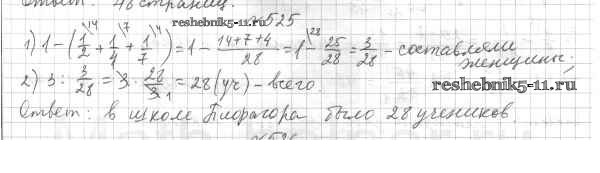 Ответ: 48 страниц.
reshebnik5-11.ru №525
1) 1 - (1/2 \14 + 1/4 \7 + 1/7 \4) = 1 - (14+7+4)/28 = 1 \28 - 25/28 = 3/28 - составляли женщины;
2) 3 : 3/28 = 3 · 28/3 1 = 28 (уч) - всего.
reshebnik5-11.ru
Ответ: в школе Пифагора было 28 учеников.